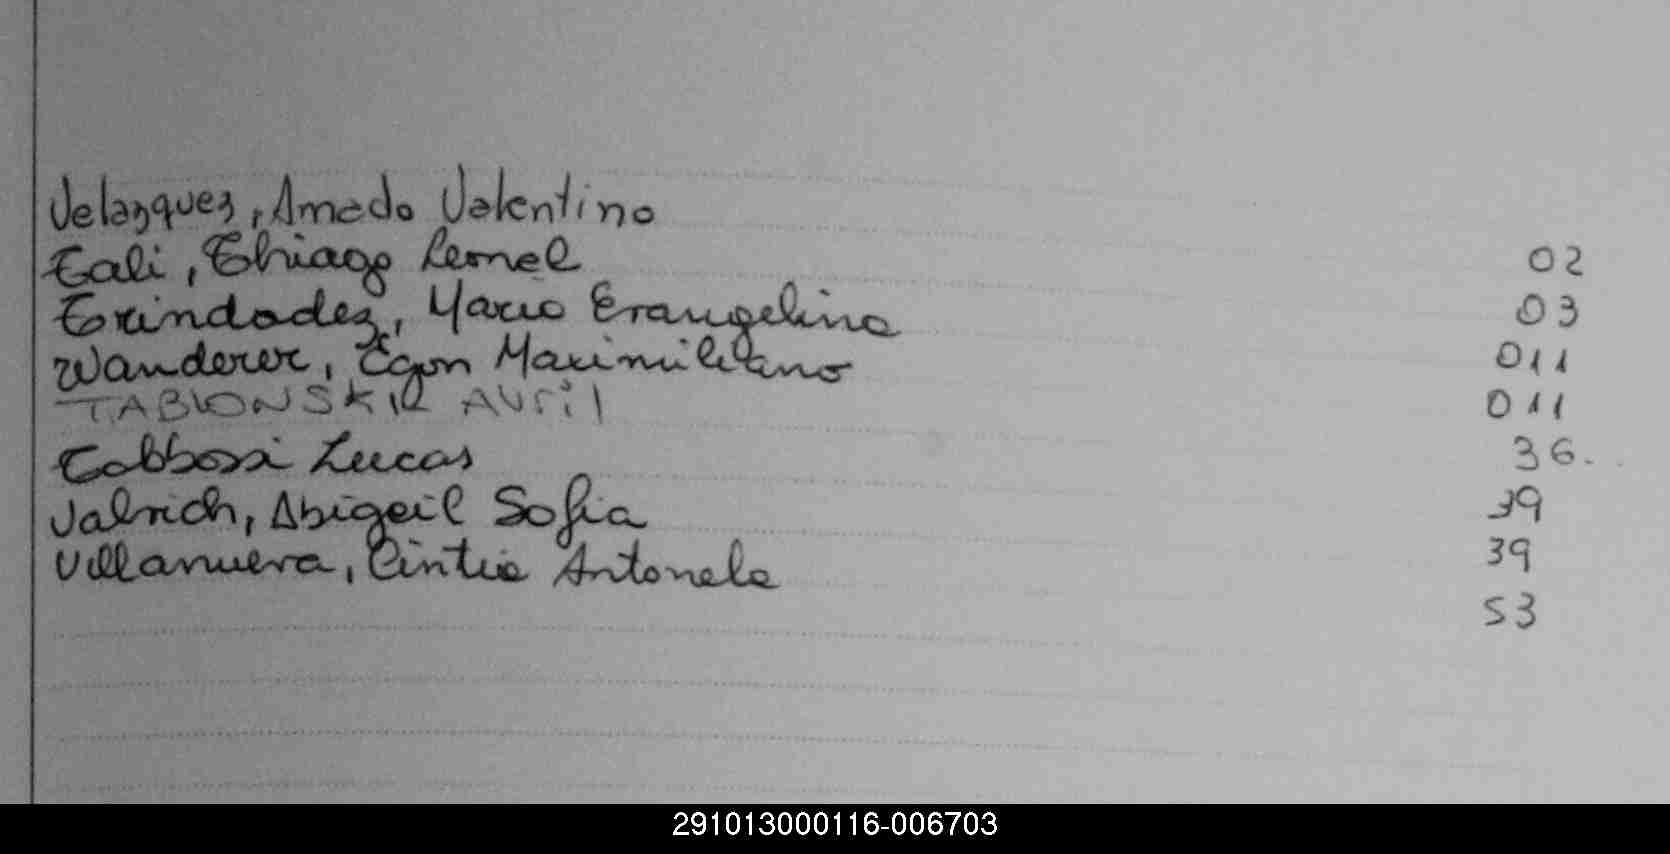 Velazquez, Amado Valentino 02
Tali, Thiago Leonel 03
Trindadez, Mario Evangelino 011
Wanderer, Egon Maximiliano 011
TABLONSKIR AVril 36.
Tabbossi Lucas 39
Valrich, Abigeil Sofia 39
Villanueva, Cintia Antonela 53
291013000116-006703